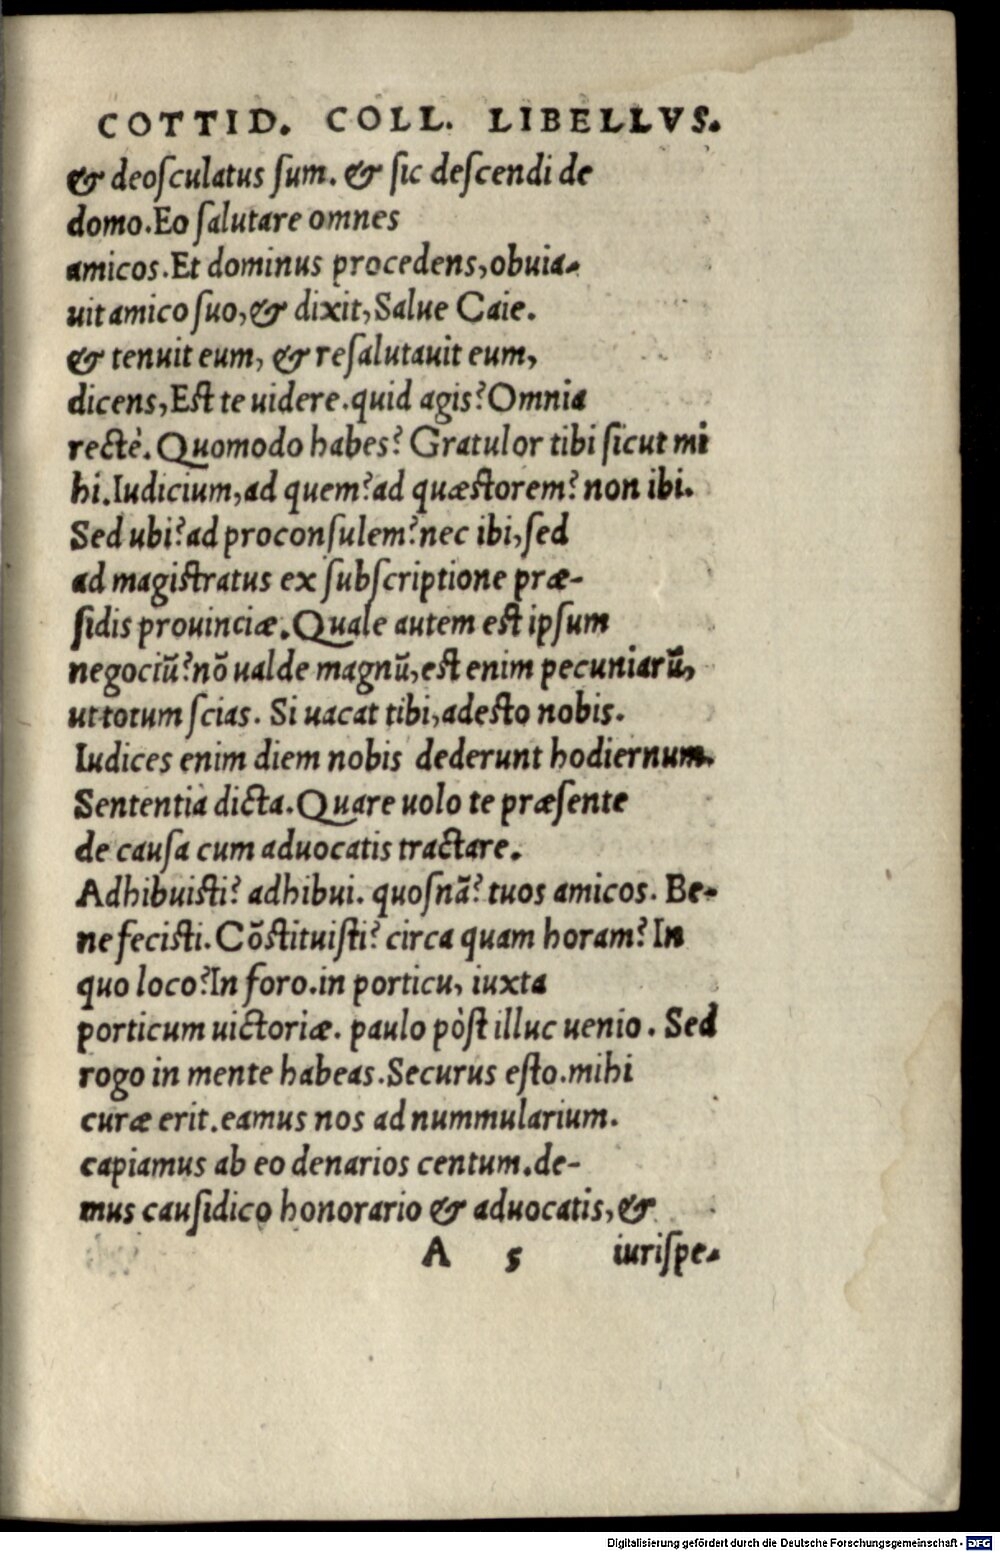 COTTID. COLL. LIBELLVS.
& deosculatus sum. & sic descendi de
domo. Eo salutare omnes
amicos. Et dominus procedens, obuia-
uit amico suo, & dixit, Salue Caie.
& tenuit eum, & resalutauit eum,
dicens, Est te uidere. quid agis? Omnia
rectè. Quomodo habes? Gratulor tibi sicut mi
hi. Iudicium, ad quem? ad quæstorem? non ibi.
Sed ubi? ad proconsulem? nec ibi, sed
ad magistratus ex subscriptione præ-
sidis prouinciæ. Quale autem est ipsum
negociũ? nõ ualde magnũ, est enim pecuniarũ,
ut totum scias. Si uacat tibi, adesto nobis.
Iudices enim diem nobis dederunt hodiernum.
Sententia dicta. Quare uolo te præsente
de causa cum aduocatis tractare.
Adhibuisti? adhibui. quosnã? tuos amicos. Be-
ne fecisti. Cõstituisti? circa quam horam? In
quo loco? In foro. in porticu, iuxta
porticum uictoriæ. paulo pòst illuc uenio. Sed
rogo in mente habeas. Securus esto. mihi
curæ erit. eamus nos ad nummularium.
capiamus ab eo denarios centum. de-
mus causidico honorario & aduocatis, &
A 5 iurispe-
Digitalisierung gefördert durch die Deutsche Forschungsgemeinschaft - DFG